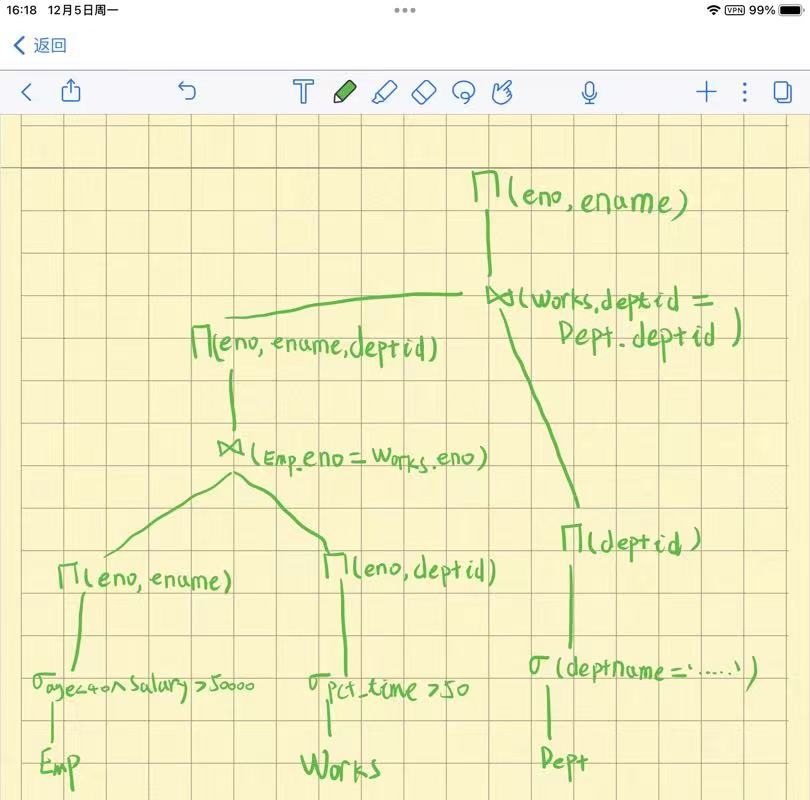 16:18 12月5日周一
VPN 99%
返回
T
Π(eno, ename)
⋈(Works.deptid =
Dept.deptid)
Π(eno, ename, deptid)
⋈(Emp.eno = Works.eno)
Π(deptid)
Π(eno, ename)
Π(eno, deptid)
σ(deptname = '.....')
σ age<40 ∧ salary >50000
σ pct_time >50
Emp
Works
Dept